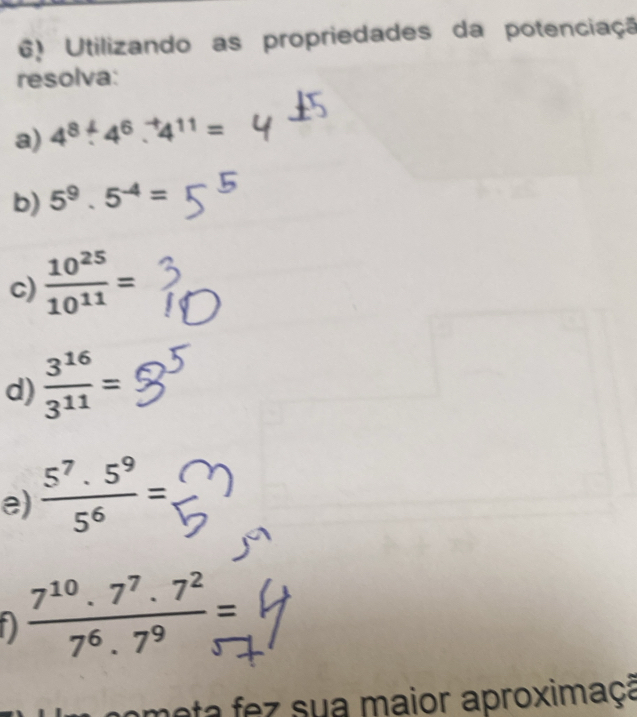 6) Utilizando as propriedades da potenciaçã
resolva:
a) 4⁸ : 4⁶ . 4¹¹ = 4 15
b) 5⁹ . 5⁻⁴ = 5⁵
c) 10²⁵ / 10¹¹ = 3 10
d) 3¹⁶ / 3¹¹ = 3⁵
e) 5⁷ . 5⁹ / 5⁶ = 3 5
f) 7¹⁰ . 7⁷ . 7² / 7⁶ . 7⁹ = 4
meta fez sua maior aproximaçã